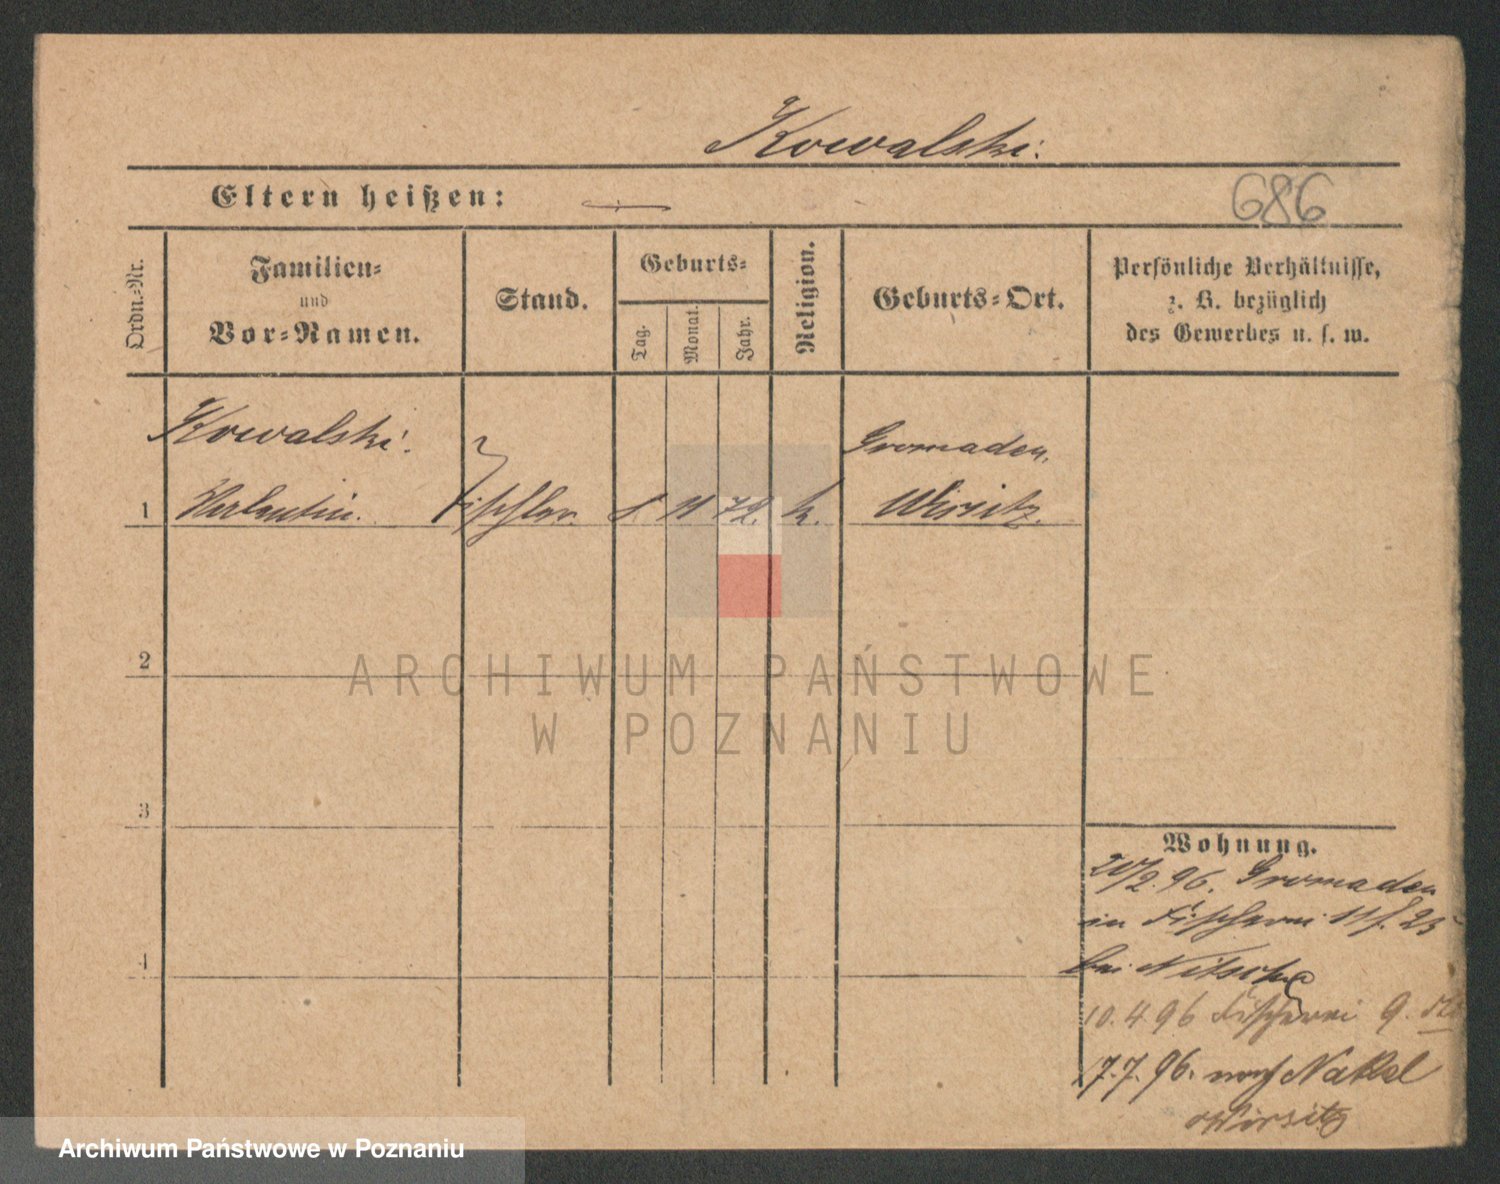 Kowalski.
Eltern heißen: —
686
Ordn.-Nr.
Familien-
und
Vor-Namen.
Stand.
Geburts-
Tag.
Monat.
Jahr.
Religion.
Geburts-Ort.
Persönliche Verhältnisse,
z. B. bezüglich
des Gewerbes u. s. w.
Kowalski.
Gromaden,
1 Valentin. Tischler. 8 11 72. k. Wirsitz.
2
ARCHIWUM PAŃSTWOWE
W POZNANIU
3
Wohnung.
20/2. 96. Gromaden
in Fischerei 11 f. 25
4
bei Nitsche
10.4.96 Fischerei 9.
17.7.96. nach Nakel
Wirsitz
Archiwum Państwowe w Poznaniu